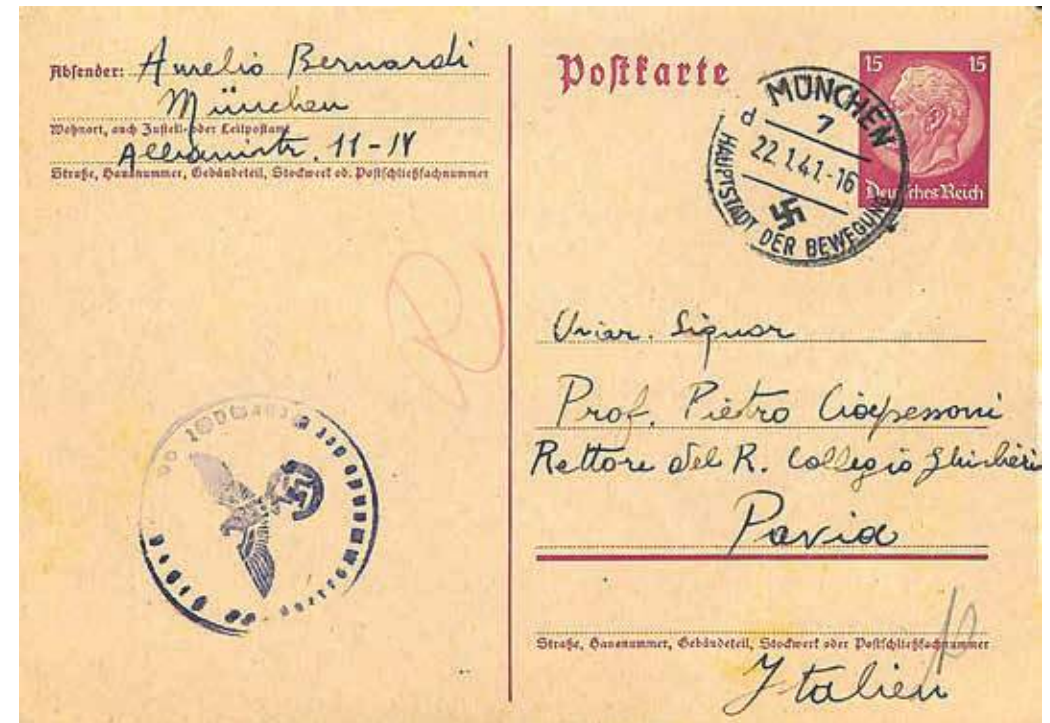 Absender: Aurelio Bernardi
München
Wohnort, auch Zustell- oder Leitpostamt
11-IV
Straße, Hausnummer, Gebäudeteil, Stockwerk od. Postschließfachnummer
Postkarte
15 15
Deutsches Reich
MÜNCHEN
7
d
22.1.41.-16
HAUPTSTADT DER BEWEGUNG
Signor
Prof. Pietro Ciapessoni
Rettore del R. Collegio Ghislieri
Pavia
Straße, Hausnummer, Gebäudeteil, Stockwerk oder Postschließfachnummer
Italien